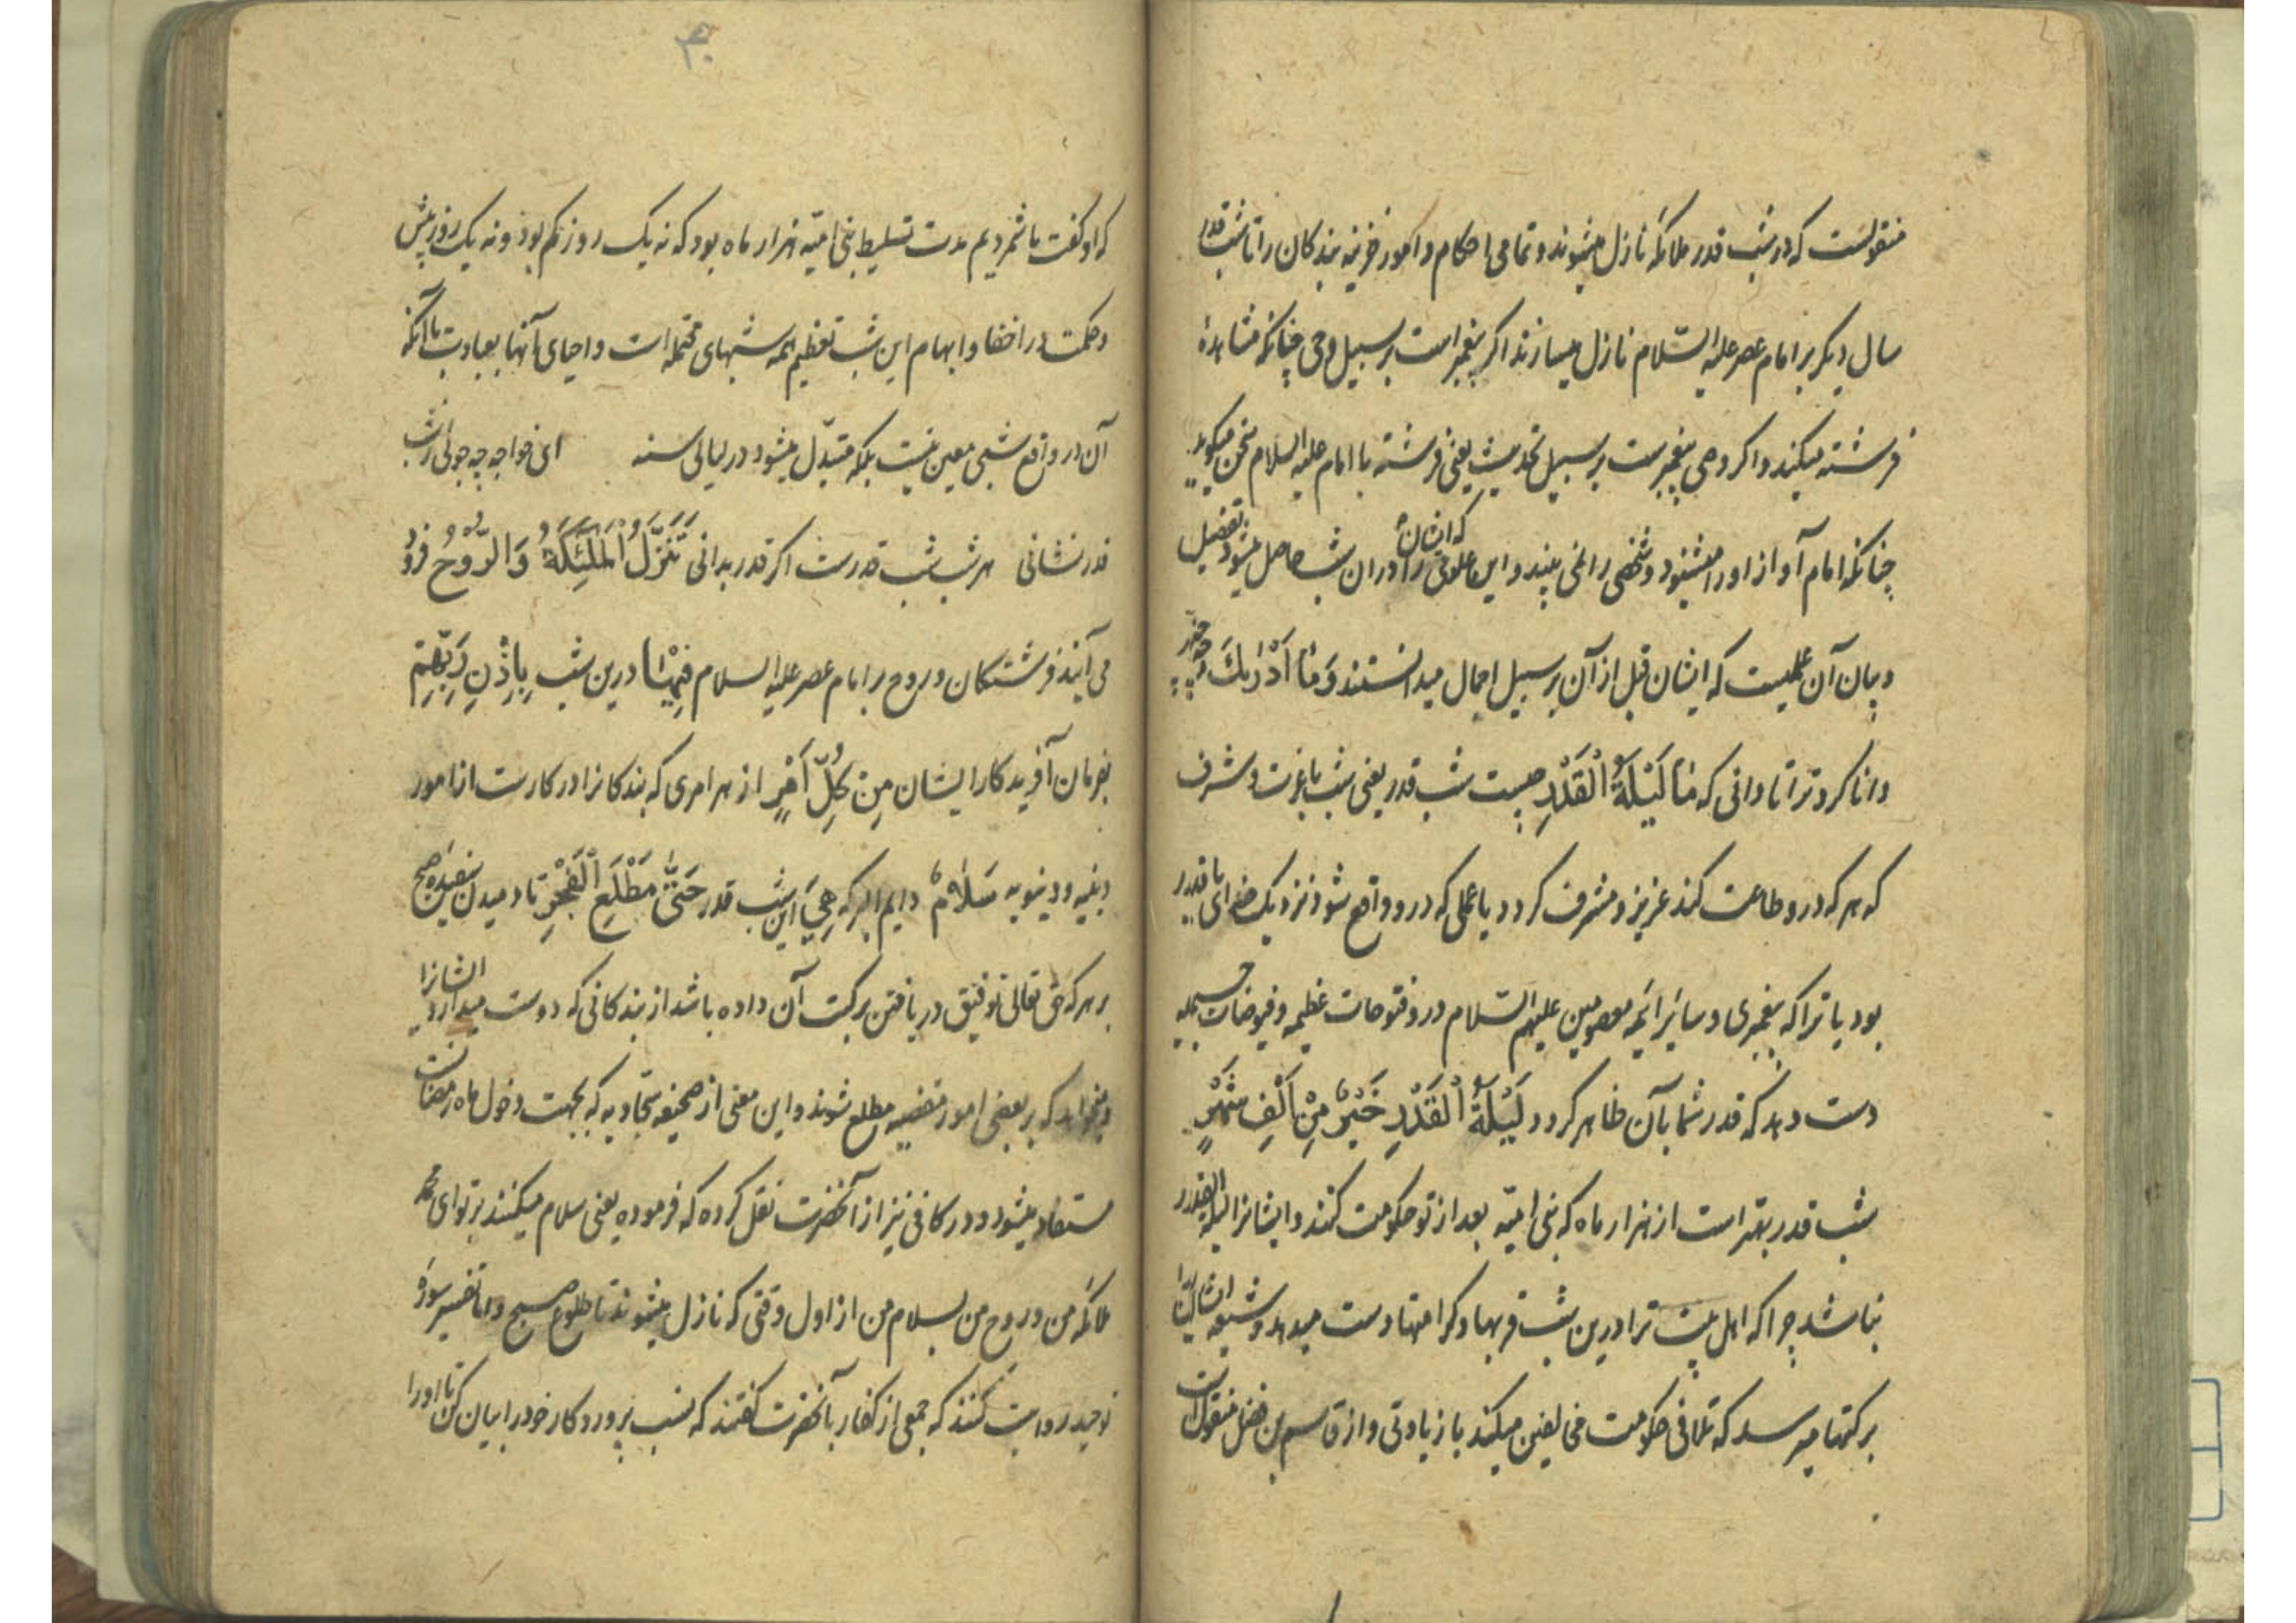 منقولست که در شب قدر ملائکه نازل میشوند و تمامی احکام و امور جزئیه بندکان را تا شب قدر
سال دیکر بر امام عصر علیه السّلام نازل میسازند اکر پیغمبر است بر سبیل وحی چنانکه مشاهدهٔ
فرشته میکند و اکر وصی پیغمبرست بر سبیل تحدیث یعنی فرشته با امام علیه السلام سخن میکوید
چنانکه امام آواز او را میشنود و شخص را نمی بیند و این علوم که ایشان را در ان شب حاصل میشود تفصیل
و بیان آن علمیست که ایشان قبل از آن بر سبیل اجمال میدانستند وَمٰا اَدْرٰیكَ و چه چیز
دانا کرد ترا تا دانی که مٰا لَیْلَةُ الْقَدْرِ چیست شب قدر یعنی شب با عزت و شرف
که هر که درو طاعت کند عزیز و مشرف کردد یا عملی که درو واقع شود نزدیک خدای با قدر
بود یا ترا که پیغمبری و سائر ائمه معصومین علیهم السّلام درو فتوحات عظیمه و فیوضات جسیمه
دست دهد که قدر شما بآن ظاهر کردد لَیْلَةُ الْقَدْرِ خَیْرٌ مِنْ اَلْفِ شَهْرٍ
شب قدر بهتر است از هزار ماه که بنی امیّه بعد از تو حکومت کنند و ایشانرا لیلة القدر
نباشد چرا که اهل بیت ترا درین شب قربها و کرامتها دست میدهد و شیعه ایشان را
برکتها میرسد که تلافی حکومت مخالفین میکند با زیادتی و از قاسم بن فضل منقول است
۳۰
که او کفت ما شمردیم مدت تسلیط بنی امیّه هزار ماه بود که نه یک روز کم بود و نه یک روز بیش
و حکمت در اخفا و ابهام این شب تعظیم همه شبهای محتمله است و احیای آنها بعبادت با آنکه
آن در واقع شبی معین نیست بلکه متبدّل میشود در لیالی سنه ای خواجه چه جوئی ز شب
قدر نشانی هر شب شب قدرست اکر قدر بدانی تَنَزَّلُ الْمَلٰئِکَةُ وَالرُّوْحُ فرود
می آیند فرشتکان و روح بر امام عصر علیه السلام فِیْهٰا درین شب بِاِذْنِ رَبِّهِمْ
بفرمان آفریدکار ایشان مِنْ کُلِّ اَمْرٍ از هر امری که بندکانرا در کارست از امور
دینیه و دنیویه سَلٰامٌ دایم البرکه هِیَ این شب قدر حَتّٰی مَطْلَعِ الْفَجْرِ تا دمیدن سفیده صبح
بر هر که حق تعالی توفیق دریافتن برکت آن داده باشد از بندکانی که دوست میدارد ایشانرا
و میخواهد که بر بعضی امور مطلع شوند و این معنی از صحیفه سجّادیه که بجهت دخول ماه رمضانست
مستفاد میشود و در کافی نیز از آنحضرت نقل کرده که فرموده یعنی سلام میکنند بر تو ای محمد
ملائکه من و روح من بسلام من از اول وقتی که نازل میشوند تا طلوع صبح و اما تفسیر سورهٔ
توحید روایت کنند که جمعی از کفار بآنحضرت کفتند که نسب پروردکار خود را بیان کن تا او را